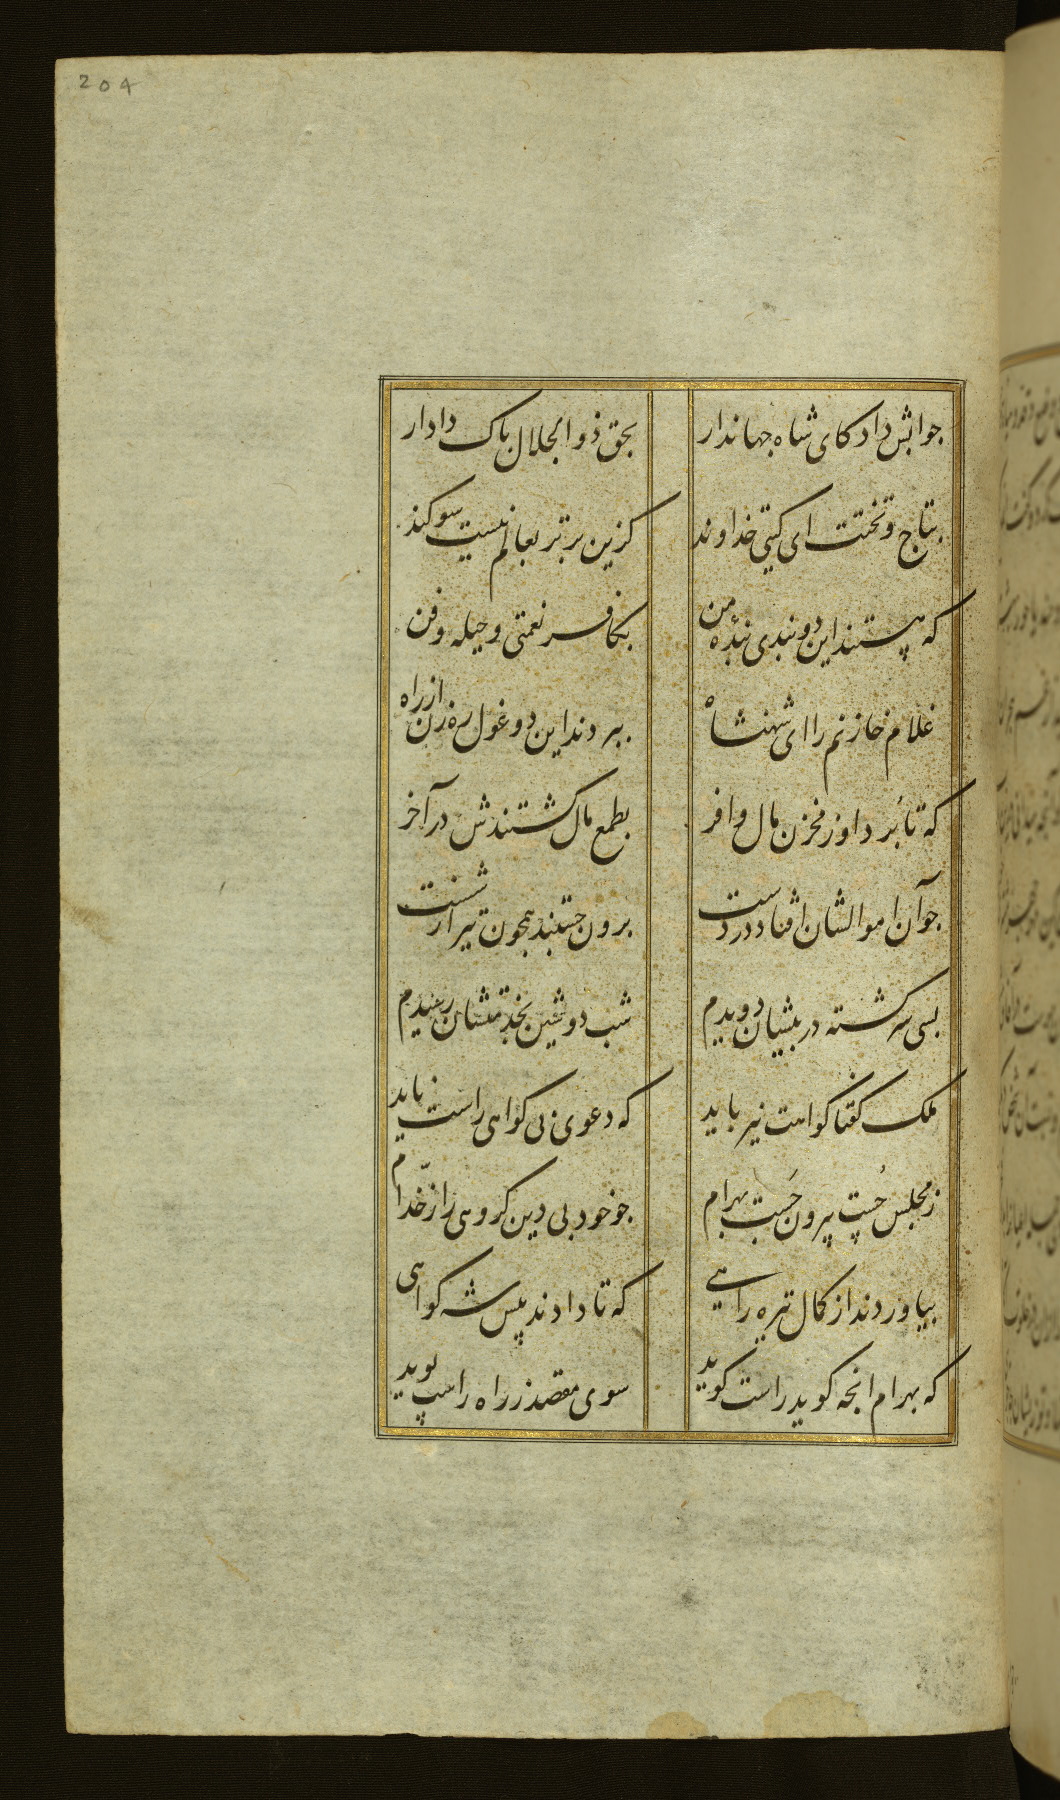 204
جوابش داد کای شاه جهاندار بحق ذو الجلال پاک دادار
بتاج و تختت ای کیتی خداوند کزین برتر بعالم نیست سوکند
که هستند این دو بندی بنده من بکافر نعمتی و حیله و فن
غلام خازنم را ای شهنشاه ببردند این دو غول ره زن از راه
که تا بُرد او ز مخزن مال وافر بطمع مال کشتندش در آخر
جو آن اموالشان افتاد در دست برون جستند همچون تیر از شست
بسی سرکشته در پیشیان دویدم شب دوشین بخدمتشان رسیدم
ملک کفتا کواهت نیز باید که دعوی بی کواهی راست ناید
ز مجلس چُست بیرون جَست بهرام جو خود بی دین کروهی را ز خدّام
بیاوردند از کمال تیره راهی که تا دادند پیش شه کواهی
که بهرام انجه کوید راست کوید سوی مقصد ز راه راست پوید